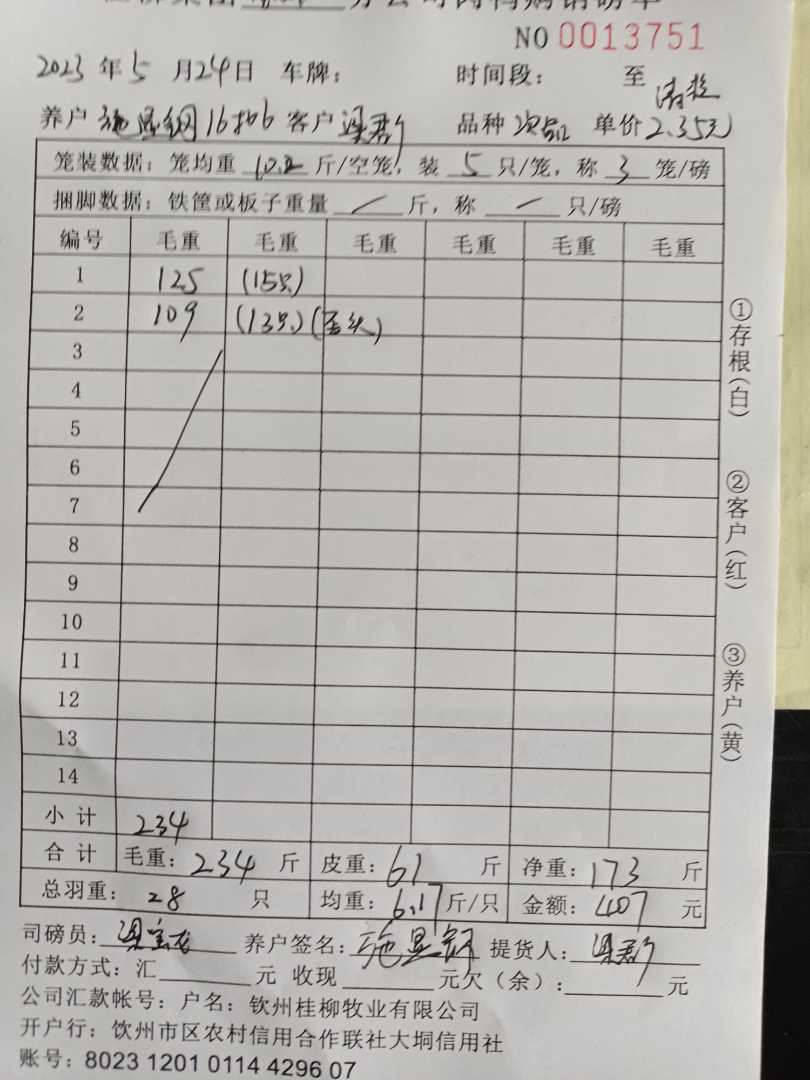 NO 0013751
2023 年 5 月 24 日 车牌： 时间段： 至
养户 施显钢 16 客户 梁 品种 次品 单价 2.35元
笼装数据：笼均重 10.2 斤/空笼，装 5 只/笼，称 3 笼/磅
捆脚数据：铁筐或板子重量 / 斤，称 一 只/磅
编号 毛重 毛重 毛重 毛重 毛重 毛重
1 125 (15只)
2 109 (13只)
3
4
5
6
7
8
9
10
11
12
13
14
小 计 234
合 计 毛重：234 斤 皮重：61 斤 净重：173 斤
总羽重：28 只 均重：6.17 斤/只 金额：407 元
司磅员：梁 养户签名：施显钢 提货人：梁
付款方式：汇 元 收现 元欠（余）： 元
公司汇款帐号：户名：钦州桂柳牧业有限公司
开户行：饮州市区农村信用合作联社大垌信用社
账号：8023 1201 0114 4296 07
①存根(白)
②客户(红)
③养户(黄)